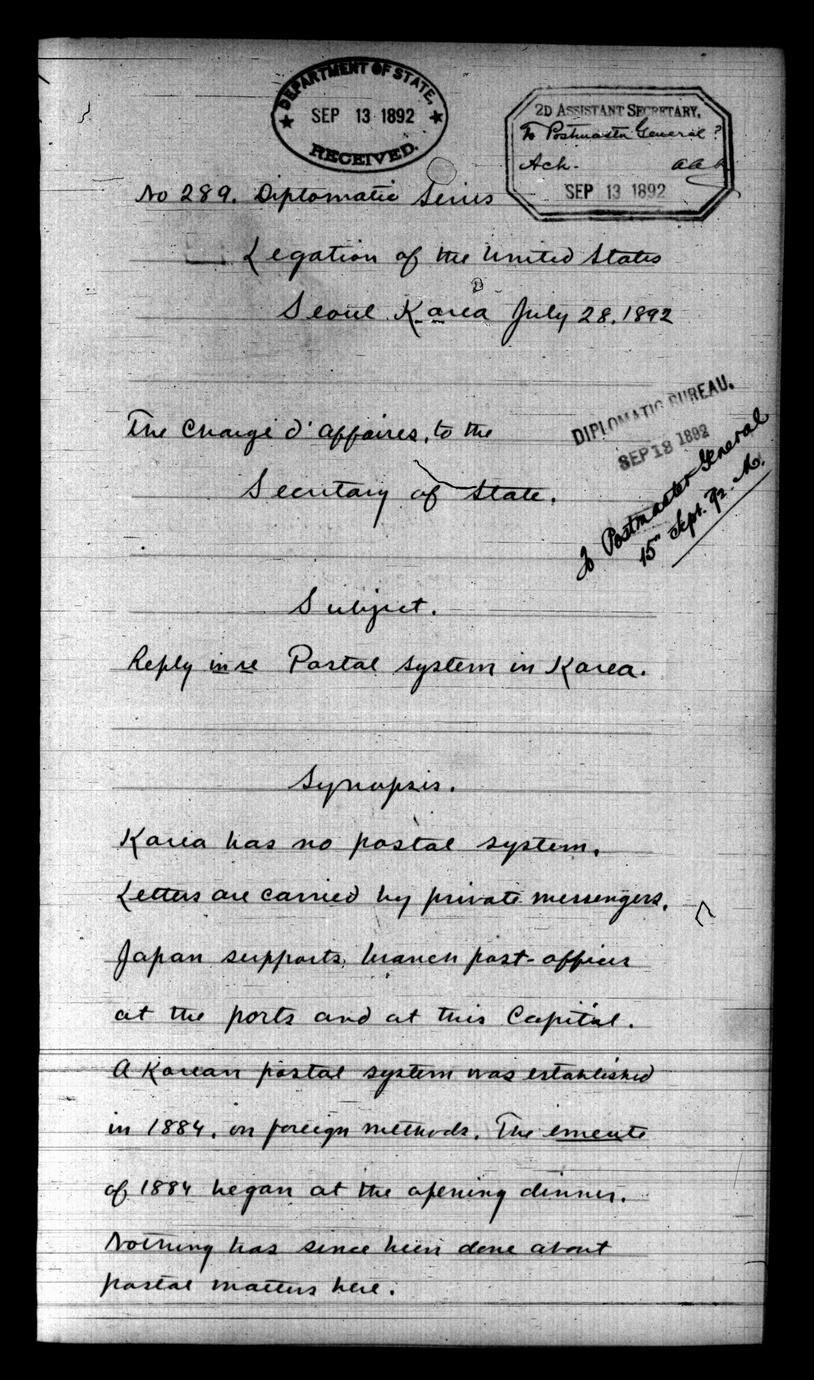 DEPARTMENT OF STATE,
SEP 13 1892
RECEIVED.
2D ASSISTANT SECRETARY,
To Postmaster General?
Ack. aaa
SEP 13 1892
No 289. Diplomatic Series
Legation of the United States
Seoul Korea July 28. 1892
The Chargé d'affaires, to the
Secretary of State.
DIPLOMATIC BUREAU.
SEP 13 1892
To Postmaster General
15" Sept. 92.
Subject.
Reply in re Postal system in Korea.
Synopsis.
Korea has no postal system.
Letters are carried by private messengers.
Japan supports branch post-offices
at the ports and at this Capital.
A Korean postal system was established
in 1884. on foreign methods. The emeute
of 1884 began at the opening dinner.
Nothing has since been done about
postal matters here.